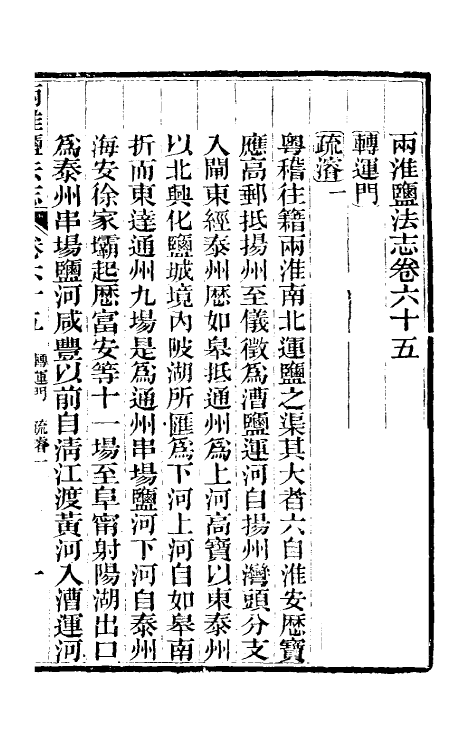 兩淮鹽法志卷六十五
轉運門
疏濬一
粵稽往籍兩淮南北運鹽之渠其大者六自淮安歷寶
應高郵抵揚州至儀徵爲漕鹽運河自揚州灣頭分支
入閘東經泰州歷如皋抵通州爲上河高寶以東泰州
以北興化鹽城境內陂湖所匯爲下河上河自如皋南
折而東達通州九場是爲通州串場鹽河下河自泰州
海安徐家壩起歷富安等十一場至阜甯射陽湖出口
爲泰州串場鹽河咸豐以前自淸江渡黃河入漕運河
兩淮鹽法志 卷六十五 轉運門 疏濬一 一